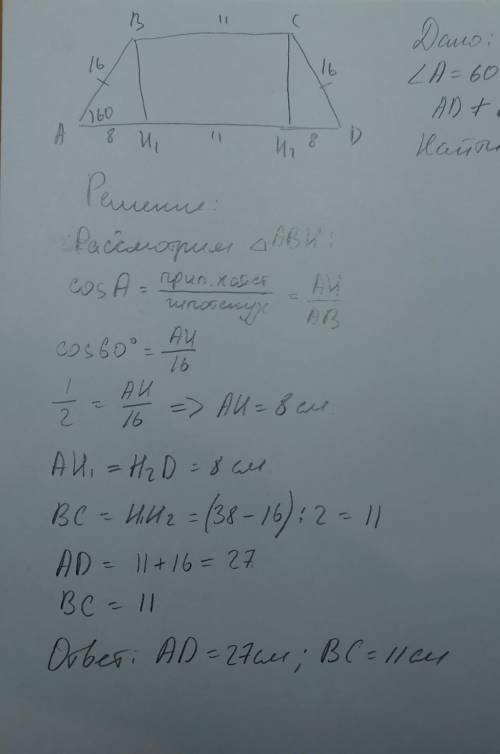 B 11 C
16 16
A 60 8 H₁ 11 H₂ 8 D
Дано:
∠A = 60
AD +
Найти
Решение:
Рассмотрим △ABH:
cosA = прил. катет / гипотенуз = AH / AB
cos60° = AH / 16
1/2 = AH/16 => AH = 8 см
AH₁ = H₂D = 8 см
BC = H₁H₂ = (38 - 16) : 2 = 11
AD = 11 + 16 = 27
BC = 11
Ответ: AD = 27см; BC = 11 см